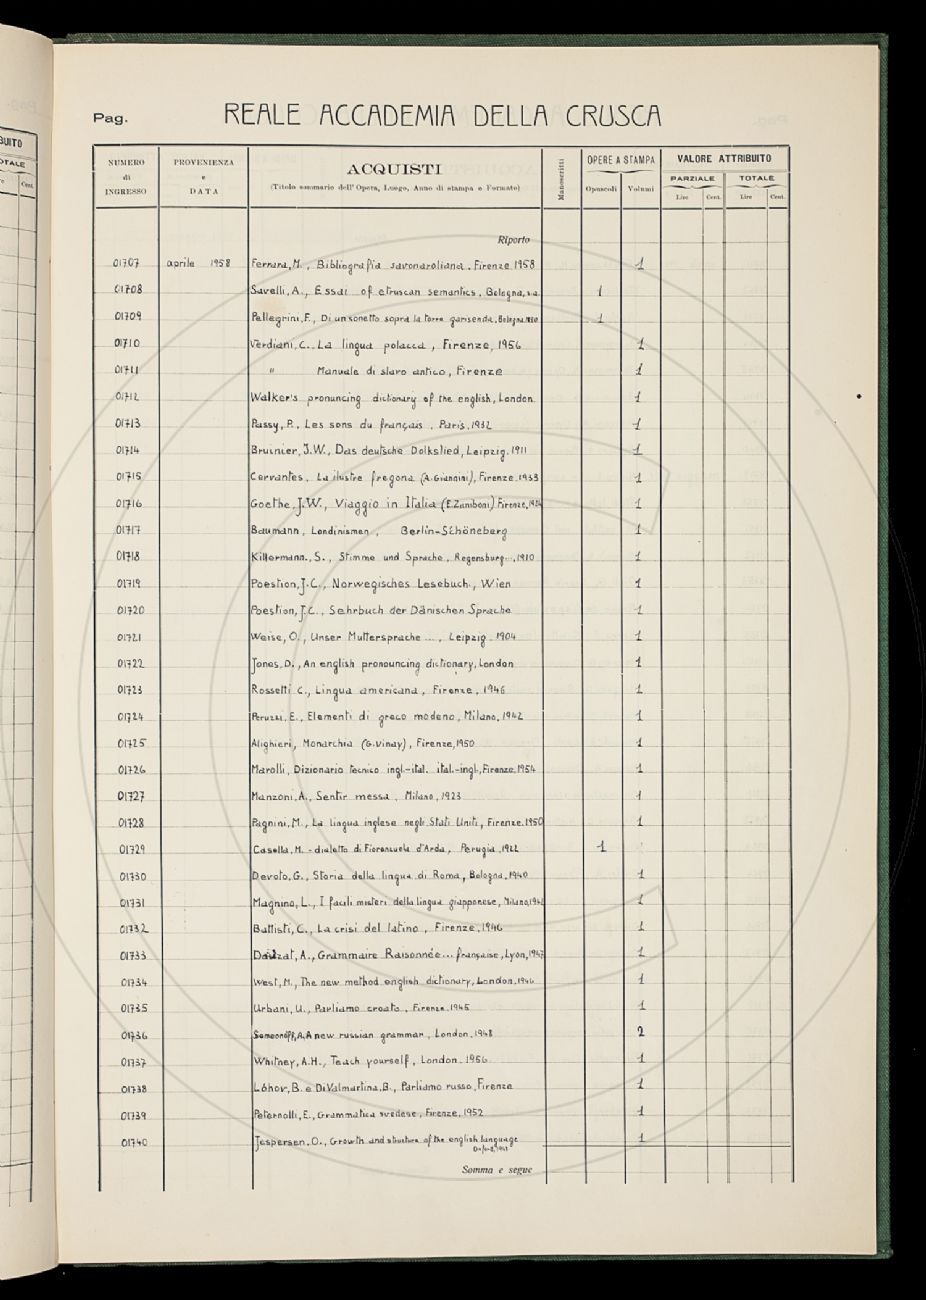 Pag. REALE ACCADEMIA DELLA CRUSCA
BUITO
OTALE
Cent.
NUMERO di INGRESSO PROVENIENZA e DATA ACQUISTI (Titolo sommario dell' Opera, Luogo, Anno di stampa e Formato) Manoscritti OPERE A STAMPA Opuscoli Volumi VALORE ATTRIBUITO PARZIALE Lire Cent. TOTALE Lire Cent.
Riporto
01707 aprile 1958 Ferrara, M., Bibliografia savonaroliana. Firenze 1958 1
01708 Savelli, A., Essai of etruscan semantics, Bologna, s.a. 1
01709 Pellegrini, F., Di un sonetto sopra la torre garisenda, Bologna 1
01710 Verdiani, C., La lingua polacca, Firenze, 1956 1
01711 " Manuale di slavo antico, Firenze 1
01712 Walker's pronuncing dictionary of the english, London. 1
01713 Passy, P., Les sons du français, Paris, 1932 1
01714 Bruinier, J.W., Das deutsche Volkslied, Leipzig. 1911 1
01715 Cervantes, La ilustre fregona (A. Giannini), Firenze, 1933 1
01716 Goethe, J.W., Viaggio in Italia (E. Zaniboni) Firenze, 1
01717 Baumann, Londinismen, Berlin-Schöneberg 1
01718 Killermann., S., Stimme und Sprache, Regensburg..., 1910 1
01719 Poestion, J.C., Norwegisches Lesebuch, Wien 1
01720 Poestion, J.C., Sehrbuch der Dänischen Sprache 1
01721 Weise, O., Unser Muttersprache ..., Leipzig. 1904 1
01722 Jones, D., An english pronouncing dictionary, London 1
01723 Rossetti C., Lingua americana, Firenze, 1946 1
01724 Peruzzi, E., Elementi di greco modeno, Milano, 1942 1
01725 Alighieri, Monarchia (G. Vinay), Firenze, 1950 1
01726 Marolli, Dizionario tecnico ingl.-ital. ital.-ingl., Firenze, 1954 1
01727 Manzoni, A., Sentir messa, Milano, 1923 1
01728 Pagnini, M., La lingua inglese negli Stati Uniti, Firenze. 1950 1
01729 Casella, M. - dialetto di Fiorenzuola d'Arda, Perugia, 1922 1
01730 Devoto, G., Storia della lingua di Roma, Bologna, 1940 1
01731 Magnino, L., I facili misteri della lingua giapponese, Milano, 1942 1
01732 Battisti, C., La crisi del latino, Firenze, 1946 1
01733 Dauzat, A., Grammaire Raisonnée... française, Lyon, 1947 1
01734 West, M., The new method english dictionary, London, 1946 1
01735 Urbani, U., Parliamo croato, Firenze, 1945 1
01736 Semeonoff, A, A new russian grammar, London, 1948 2
01737 Whitney, A.H., Teach yourself, London. 1956 1
01738 Lóhov, B. e Di Valmartina, B., Parliamo russo, Firenze 1
01739 Peternolli, E., Grammatica svedese, Firenze, 1952 1
01740 Jespersen, O., Growth and structure of the english language 1
Somma e segue